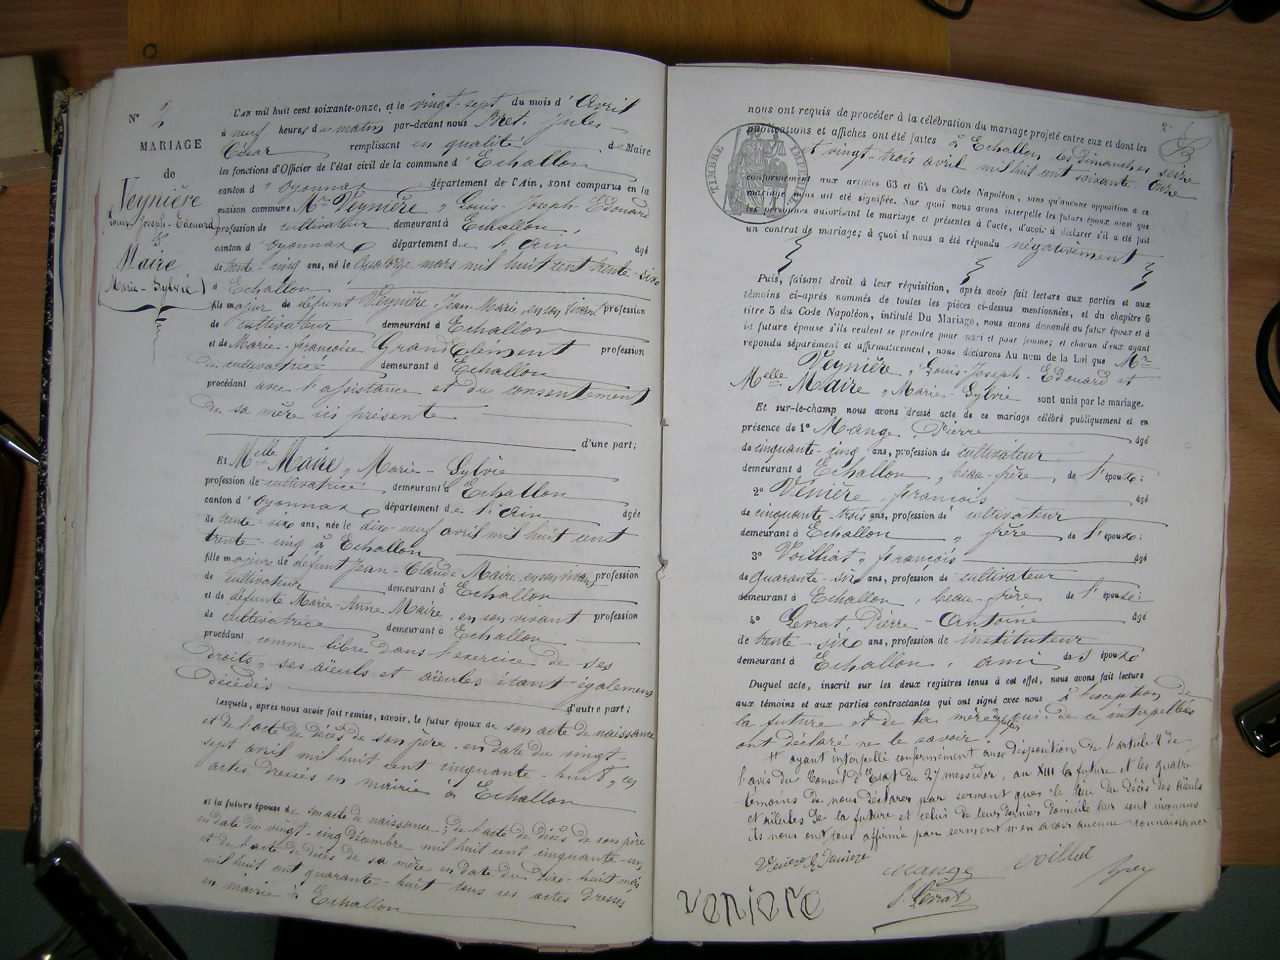 N° 2
MARIAGE
de
Veynière
Louis-Joseph-Edouard
&
Maire
Marie-Sylvie
L'an mil huit cent soixante-onze, et le vingt-sept du mois d'Avril
à neuf heures du matin par-devant nous Bret Jules
César remplissant en qualité de Maire
les fonctions d'Officier de l'état civil de la commune d'Echallon
canton d'Oyonnax département de l'Ain, sont comparus en la
maison commune Mr Veynière, Louis-Joseph-Edouard
profession de cultivateur demeurant à Echallon,
canton d'Oyonnax département de l'Ain âgé
de trente-cinq ans, né le quatorze mars mil huit cent trente-six
à Echallon
fils majeur de défunt Veynière Jean-Marie, en son vivant profession
de cultivateur demeurant à Echallon
et de Marie-françoise Grandclément profession
de cultivatrice demeurant à Echallon
procédant avec l'assistance et du consentement
de sa mère ici présente
d'une part;
Et Melle Maire, Marie-Sylvie
profession de cultivatrice demeurant à Echallon
canton d'Oyonnax département de l'Ain âgée
de trente-six ans, née le dix-neuf avril mil huit cent
trente-cinq à Echallon
fille majeure de défunt Jean-Claude Maire, en son vivant profession
de cultivateur demeurant à Echallon
et de défunte Marie-Anne Maire, en son vivant profession
de cultivatrice demeurant à Echallon
procédant comme libre dans l'exercice de ses
droits, ses aïeuls et aïeules étant également
décédés d'autre part;
Lesquels, après nous avoir fait remise, savoir, le futur époux de son acte de naissance
et de l'acte de décès de son père, en date du vingt-
sept avril mil huit cent cinquante-huit, ces
actes dressés en mairie à Echallon
et la future épouse de son acte de naissance; de l'acte de décès de son père
en date du vingt-cinq décembre mil huit cent cinquante-un,
et de l'acte de décès de sa mère en date du dix-huit mars
mil huit cent quarante-huit tous ces actes dressés
en mairie à Echallon
nous ont requis de procéder à la célébration du mariage projeté entre eux et dont les
publications et affiches ont été faites à Echallon les dimanches seize
et vingt-trois avril mil huit cent soixante onze
TIMBRE IMPÉRIAL
conformément aux articles 63 et 64 du Code Napoléon, sans qu'aucune opposition à ce
mariage nous ait été signifiée. Sur quoi nous avons interpellé les futurs époux ainsi que
les personnes autorisant le mariage et présentes à l'acte, d'avoir à déclarer s'il a été fait
un contrat de mariage; à quoi il nous a été répondu négativement
Puis, faisant droit à leur réquisition, après avoir fait lecture aux parties et aux
témoins ci-après nommés de toutes les pièces ci-dessus mentionnées, et du chapitre 6
titre 5 du Code Napoléon, intitulé Du Mariage, nous avons demandé au futur époux et à
la future épouse s'ils veulent se prendre pour mari et pour femme; et chacun d'eux ayant
répondu séparément et affirmativement, nous déclarons Au nom de la Loi que Mr
Veynière, Louis-Joseph-Edouard et
Melle Maire, Marie-Sylvie sont unis par le mariage.
Et sur-le-champ nous avons dressé acte de ce mariage célébré publiquement et en
présence de 1° Mange Pierre âgé
de cinquante-cinq ans, profession de cultivateur
demeurant à Echallon, beau-frère, de l'époux;
2° Vénière, françois âgé
de cinquante-trois ans, profession de cultivateur
demeurant à Echallon, frère de l'époux;
3° Voilliat, françois âgé
de quarante-six ans, profession de cultivateur
demeurant à Echallon, beau-frère de l'époux;
4° Serrat Pierre-Antoine âgé
de trente-six ans, profession de instituteur
demeurant à Echallon, ami des époux
Duquel acte, inscrit sur les deux registres tenus à cet effet, nous avons fait lecture
aux témoins et aux parties contractantes qui ont signé avec nous à l'exception de
la future et de la mère qui de ce interpellées
ont déclaré ne le savoir.
Et ayant interpellé conformément aux disposition de l'article 2 de
l'avis du Conseil d'Etat du 27 messidor, an XIII la future et les quatre
témoins de nous déclarer par serment que le lieu du décès des aïeuls
et aïeules de la future et celui de leur dernier domicile leur sont inconnus
ils nous ont tous affirmé par serment n'en avoir aucune connaissance
mange voillat
Veniere